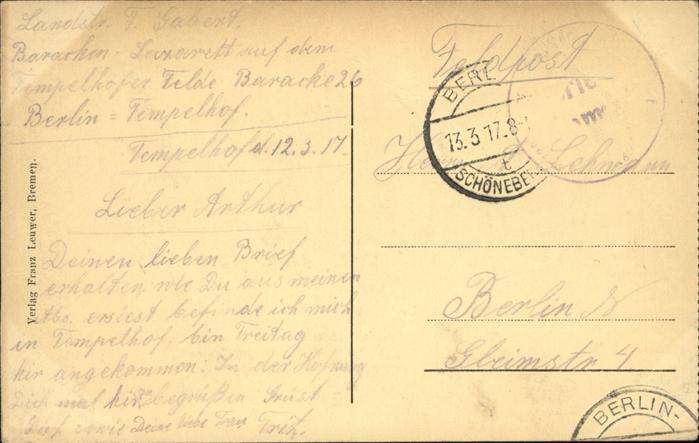 Landstr. F. Gabert.
Baracken-Lazarett auf dem
Tempelhofer Felde Baracke 26
Berlin = Tempelhof.
Tempelhof d. 12.3.17
Lieber Arthur
Deinen lieben Brief
erhalten wie Du aus meinen
Abs. ersiest befinde ich mich
in Tempelhof, bin Freitag
hir angekommen. In der Hofnung
Dich mal hir begrüßen
sowie Deine liebe Frau
Verlag Franz Leuwer, Bremen.
Feldpost
BERLIN
13.3.17.8-
t
SCHÖNEBE
Herrn Lehmann
Berlin N
Gleimstr 4
BERLIN-